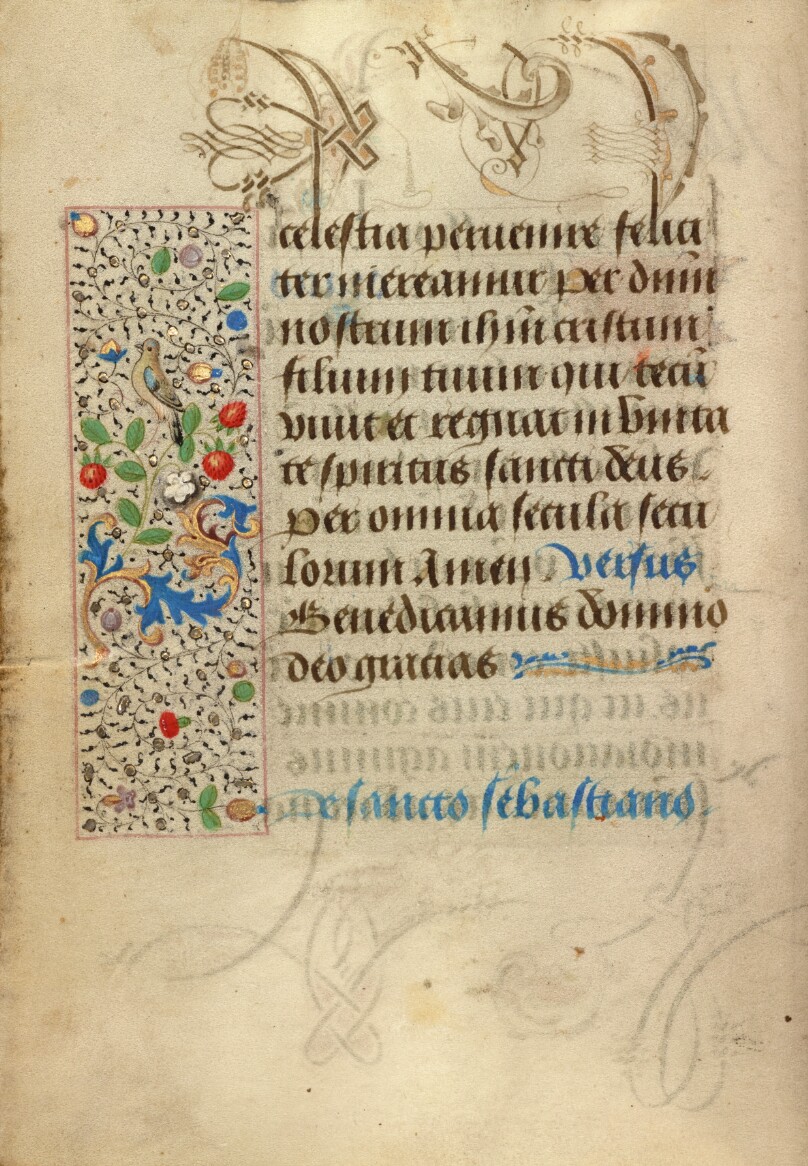 celestia peruenire felici
ter mereamur per dn̄m
nostrum ih̄m cristum
filium tuum qui tecū
viuit et regnat in vnita
te spiritus sancti deus
per omnia secula secu
lorum Amen Versus
Benedicamus domino
deo gracias
De sancto sebastiano.